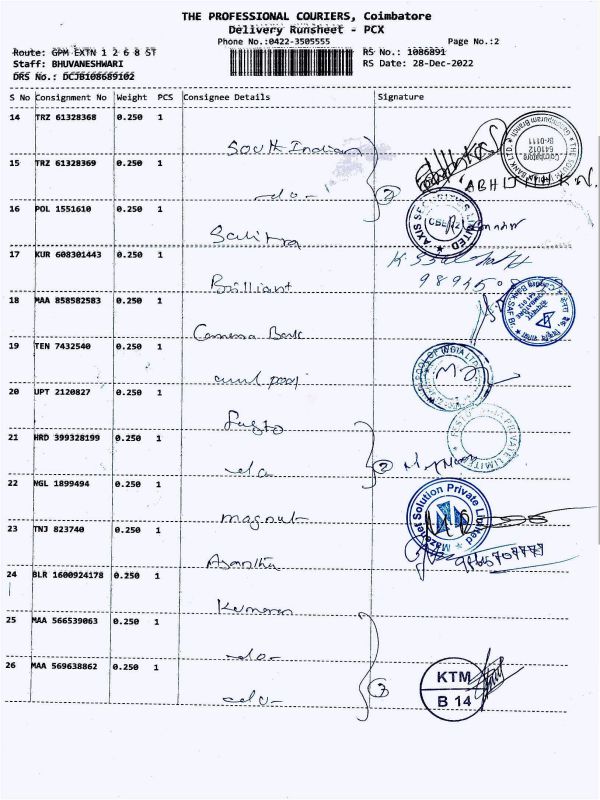 THE PROFESSIONAL COURIERS, Coimbatore
Delivery Runsheet - PCX
Phone No.:0422-3505555 Page No.:2
Route: GPM EXTN 1 2 6 8 ST RS No.: 1086891
Staff: BHUVANESHWARI RS Date: 28-Dec-2022
DRS No.: DCJB108689102
S No Consignment No Weight PCS Consignee Details Signature
14 TRZ 61328368 0.250 1
South Indian
15 TRZ 61328369 0.250 1
-do- 2
ABHIJITH K.N.
16 POL 1551610 0.250 1
AXIS SECURITIES LIMITED
CBE
17 KUR 608301443 0.250 1
Brilliant
18 MAA 858582583 0.250 1
Canara Bank
19 TEN 7432540 0.250 1
20 UPT 2120827 0.250 1
21 HRD 399328199 0.250 1
-do- 2
22 NGL 1899494 0.250 1
Magnut
Mazenet Solution Private Limited
23 TNJ 823740 0.250 1
24 BLR 1600924178 0.250 1
Kumaran
25 MAA 566539063 0.250 1
-do-
26 MAA 569638862 0.250 1
-do- 3
KTM
B 14